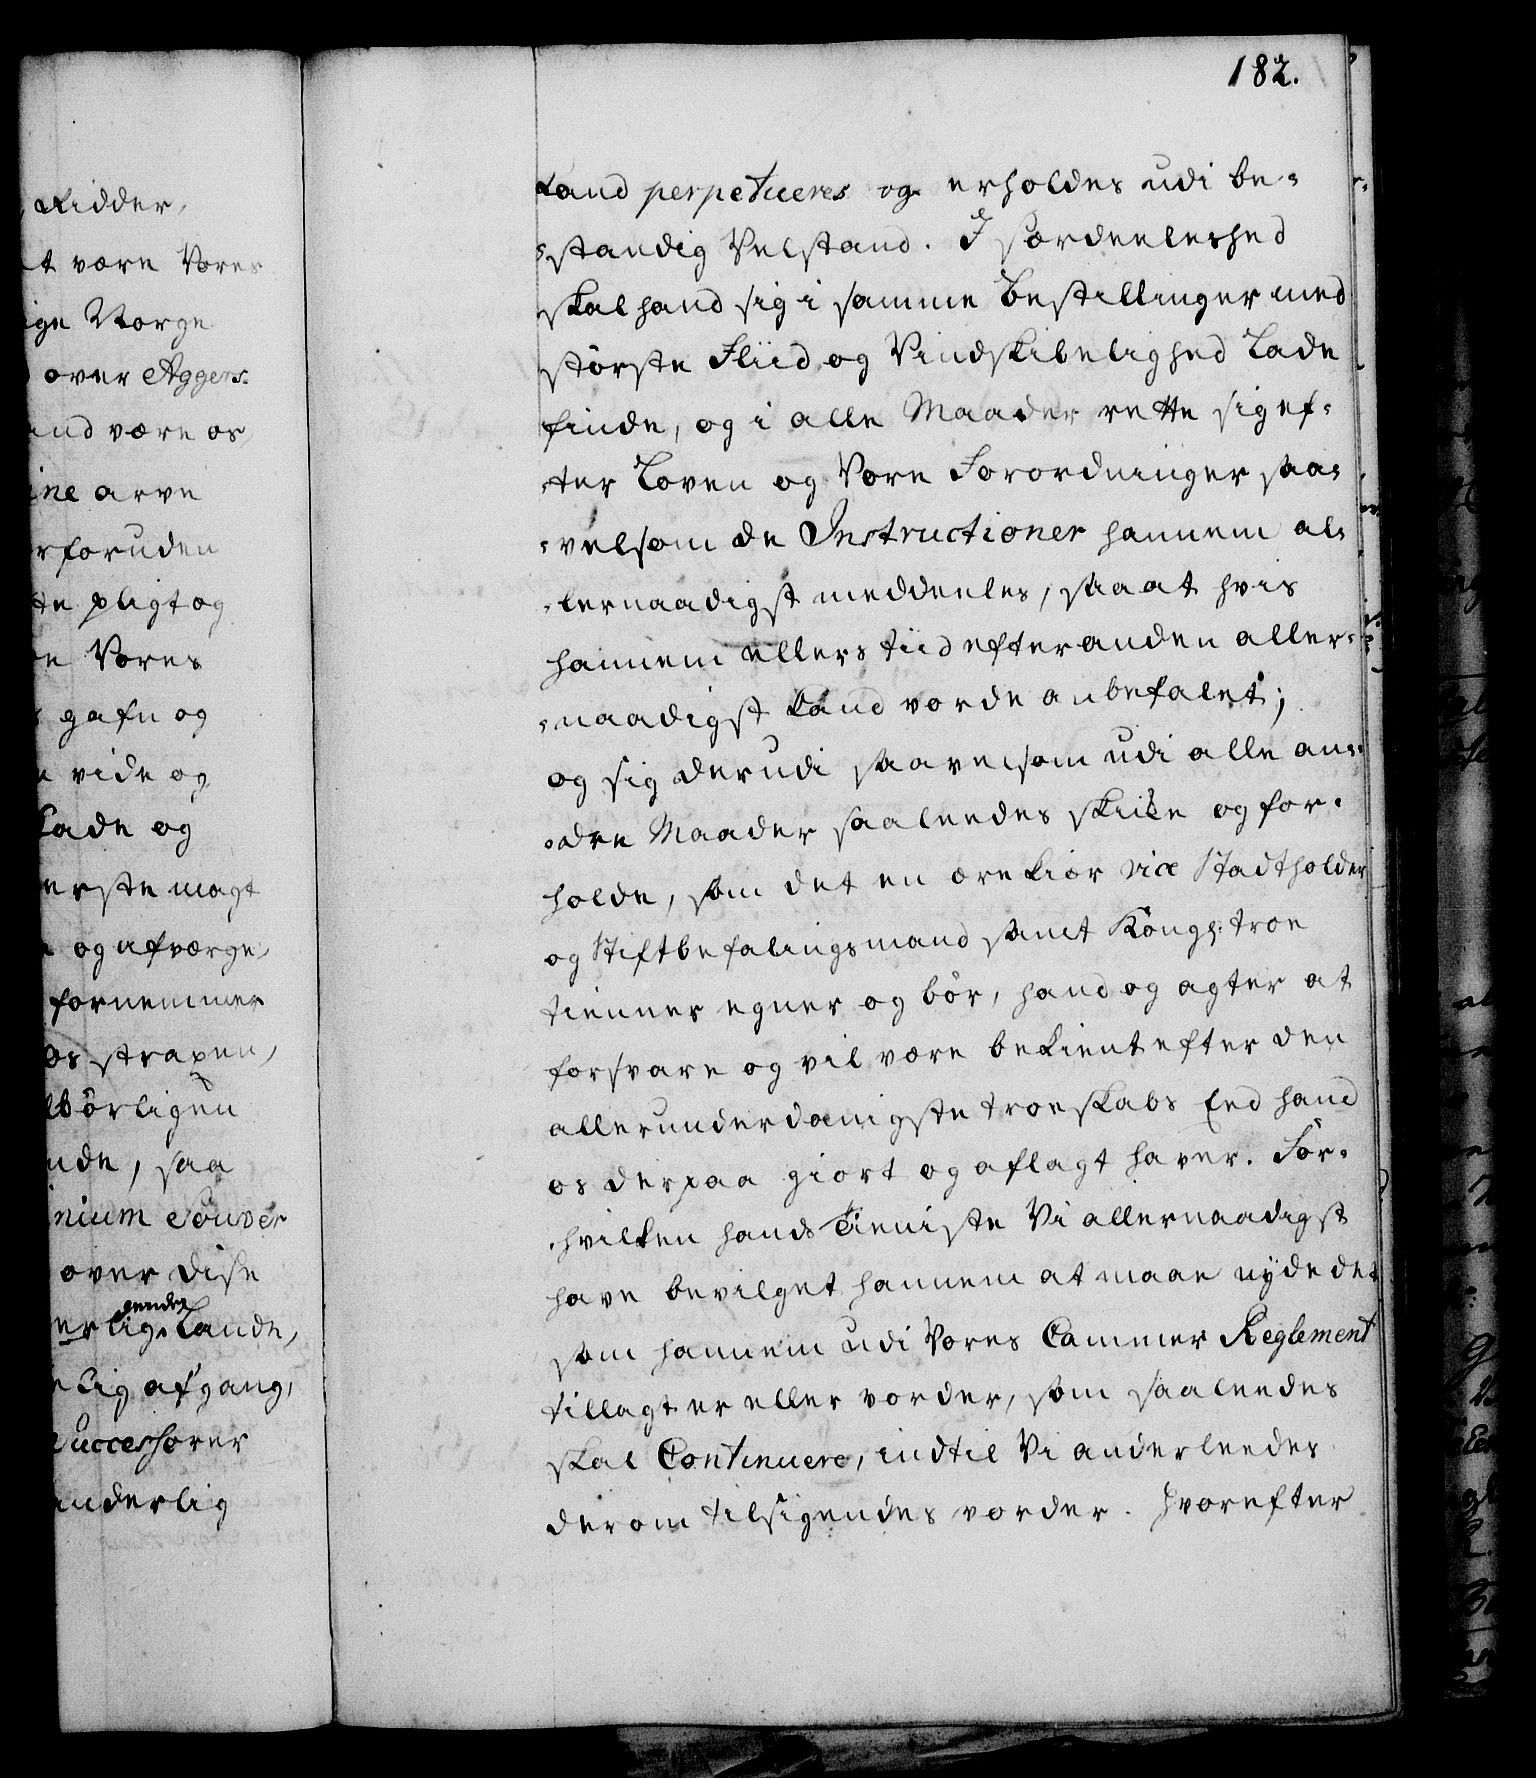 182.
Ridder,
t være Vores
ige Norge
over Aggers-
and være os,
ine arve
rforuden
te pligt og
e Vores
gafn og
vide og
Lade og
erste magt
og afværge,
fornemmer
os straxen,
lbörligen
nde, saa
nium Souver
over disse
endes
erlige Lande,
elig afgang,
Successorer
anderlig
kand perpetueres og erholdes udi be-
-standig Velstand. I særdeeleshed
skal hand sig i samme Bestillinger med
störste Fliid og Vindskibelighed Lade
finde, og i alle Maader rette sig ef-
-ter Loven og Vore Forordninger saa-
-velsom de Instructioner hannem al-
-lernaadigst meddeeles, saa at hvis
hannem ellers tiid efter anden aller-
-naadigst kand vorde anbefalet;
og sig derudi saavelsom udi alle an-
-dre Maader saaleedes skike og for-
holde, som det en ærekiær vice Stadtholder
og Stiftbefalingsmand samt Kongl. troe
tienner egner og bör, hand og agter at
forsvare og vil være bekient efter den
allerunderdanigste troeskabs Eed hand
os derpaa giort og aflagt haver. For-
-hvilken hands Tieniste Vi allernaadigst
have bevilget hannem at maae nyde det
som hannem udi Vores Cammer Reglement
tillagt er eller vorder, som saaleedes
skal Continuere, indtil Vi anderleedes
derom tilsigendes vorder. Hvorefter